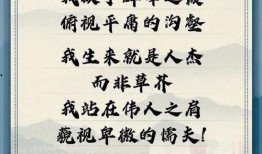 俯视平庸的沟壑
我生来就是人杰
而非草芥
我站在伟人之肩
藐视卑微的懦夫!